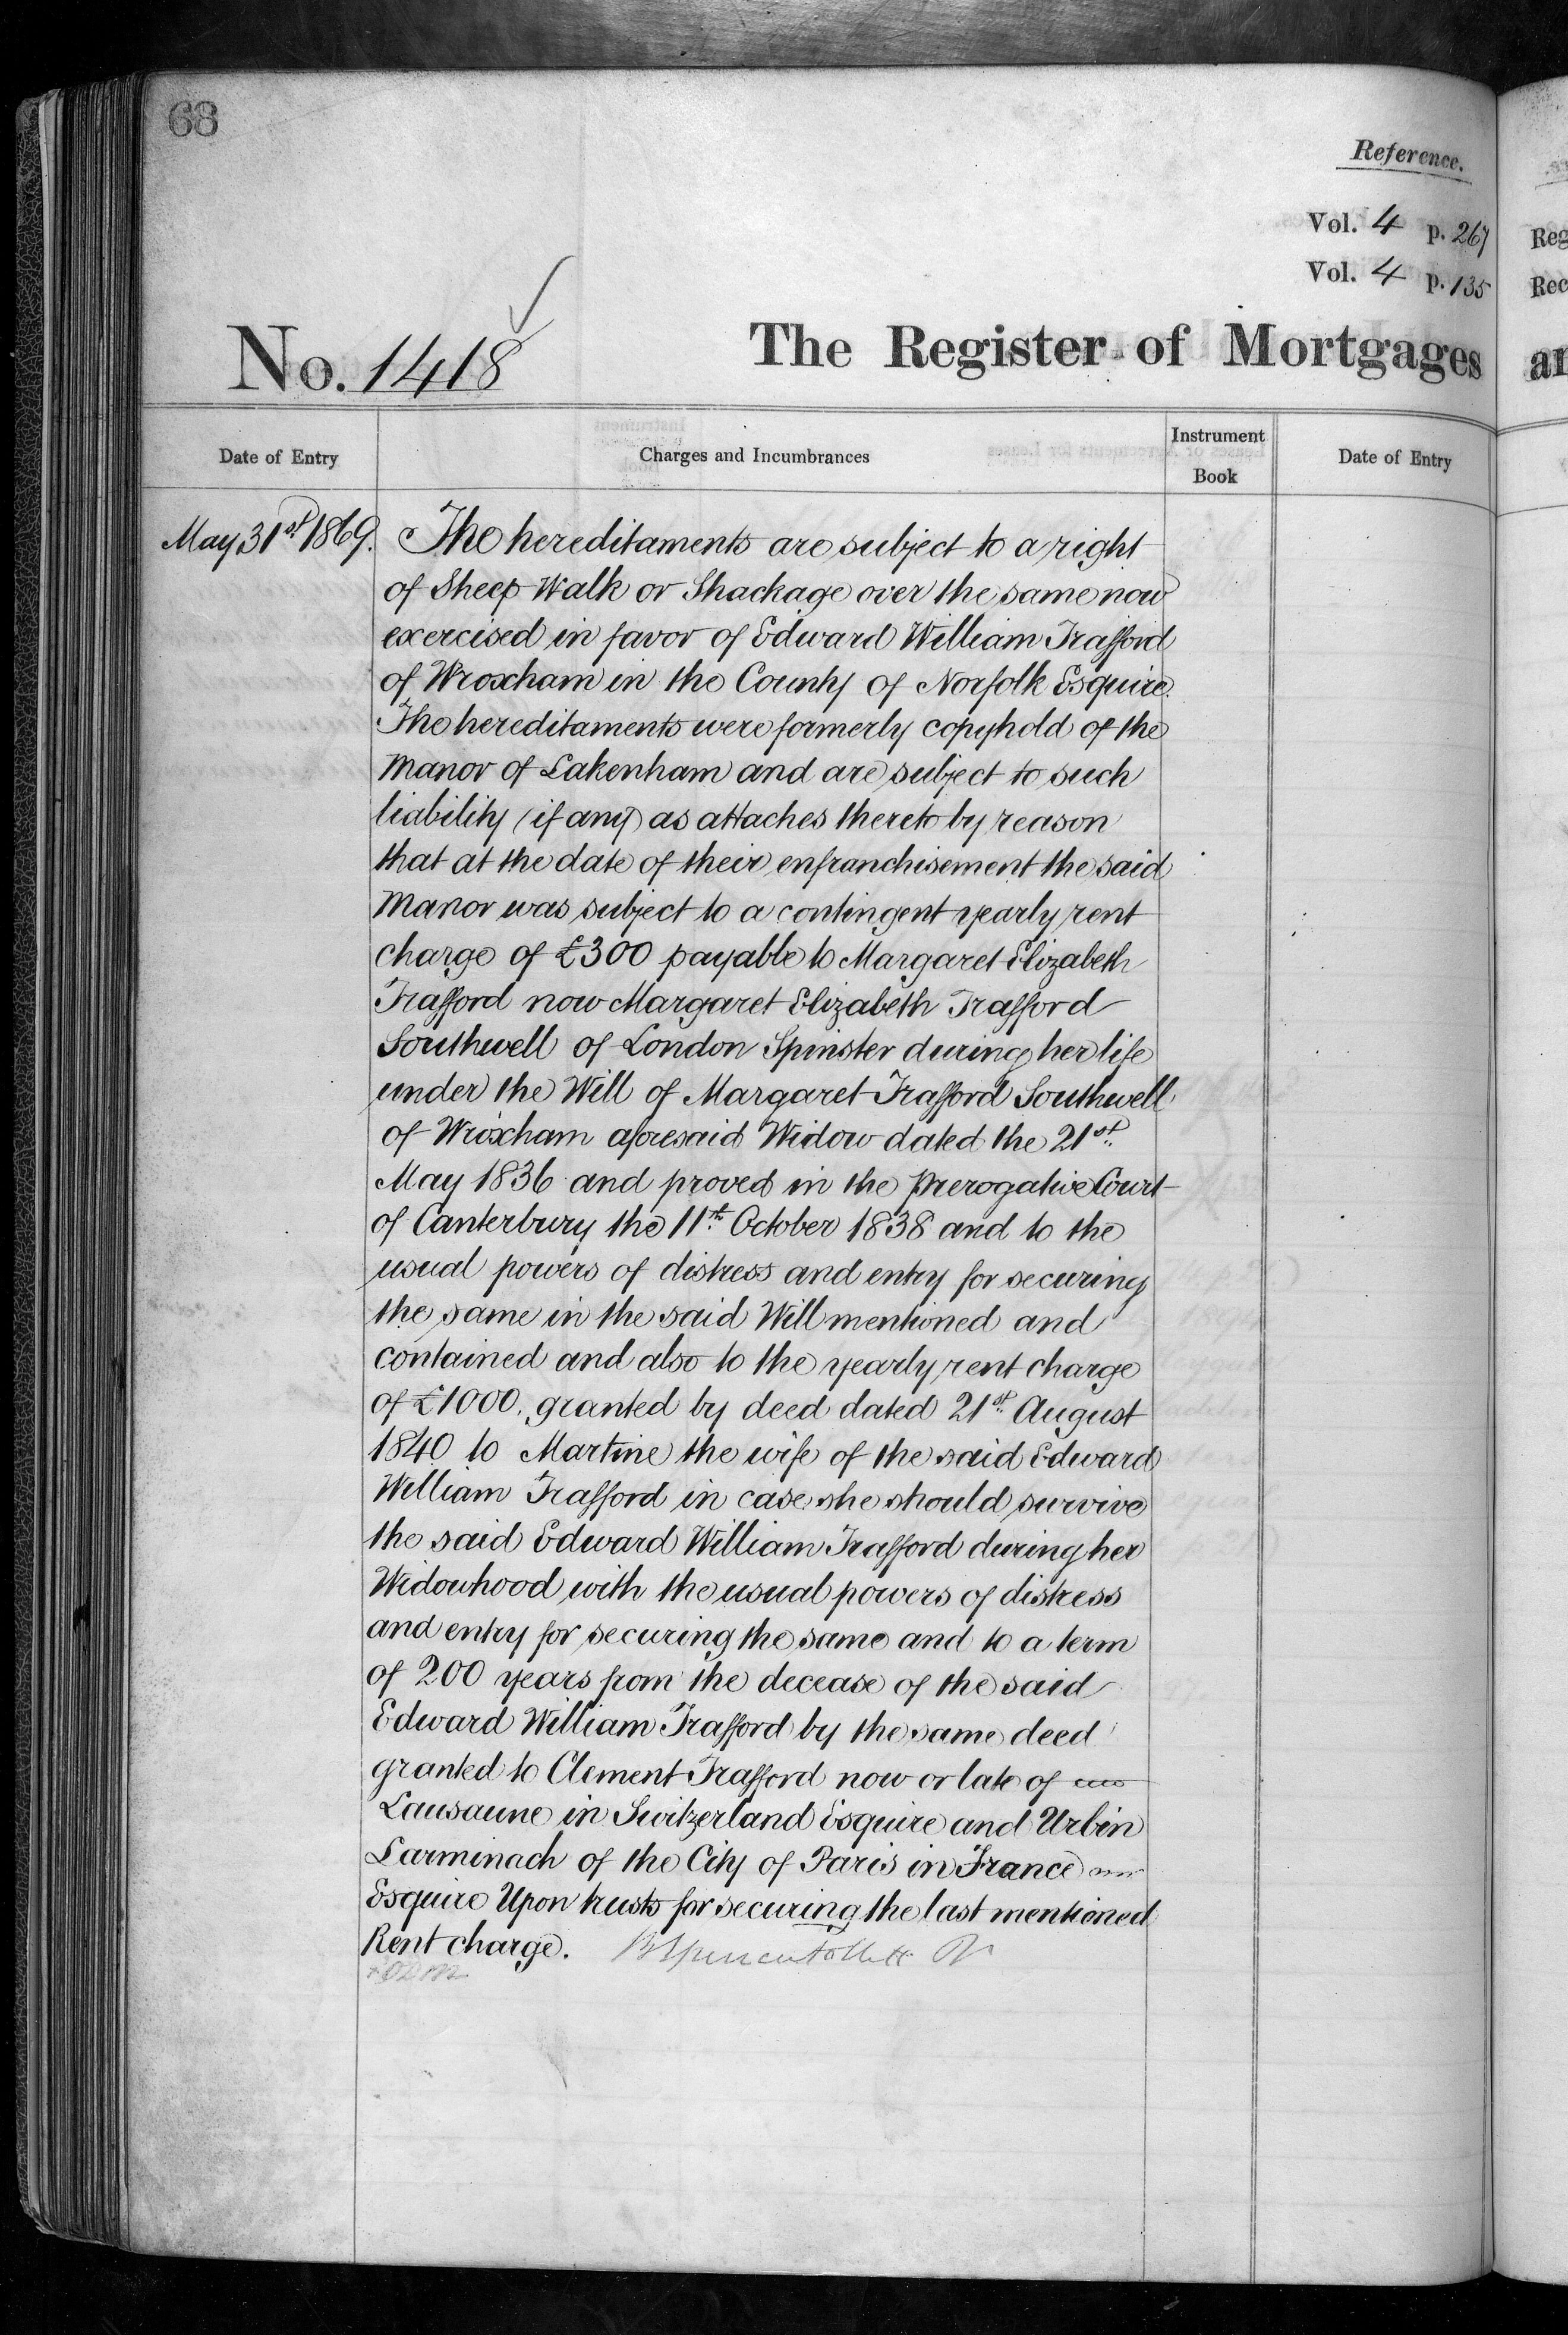 68
Reference.
Vol. 4 p. 267
Vol. 4 p. 135
No. 1418
The Register of Mortgages
Date of Entry
Charges and Incumbrances
Instrument Book
Date of Entry
May 31st 1869.
The hereditaments are subject to a right
of Sheep Walk or Shackage over the same now
exercised in favor of Edward William Trafford
of Wroxham in the County of Norfolk Esquire.
The hereditaments were formerly copyhold of the
Manor of Lakenham and are subject to such
liability (if any) as attaches thereto by reason
that at the date of their enfranchisement the said
Manor was subject to a contingent yearly rent
charge of £300 payable to Margaret Elizabeth
Trafford now Margaret Elizabeth Trafford
Southwell of London Spinster during her life
under the Will of Margaret Trafford Southwell
of Wroxham aforesaid Widow dated the 21st
May 1836 and proved in the Prerogative Court
of Canterbury the 11th October 1838 and to the
usual powers of distress and entry for securing
the same in the said Will mentioned and
contained and also to the yearly rent charge
of £1000. granted by deed dated 21st August
1840 to Martine the wife of the said Edward
William Trafford in case she should survive
the said Edward William Trafford during her
Widowhood with the usual powers of distress
and entry for securing the same and to a term
of 200 years from the decease of the said
Edward William Trafford by the same deed
granted to Clement Trafford now or late of
Lausaune in Switzerland Esquire and Urbin
Larminach of the City of Paris in France
Esquire Upon trusts for securing the last mentioned
Rent charge.
Reg
Rec